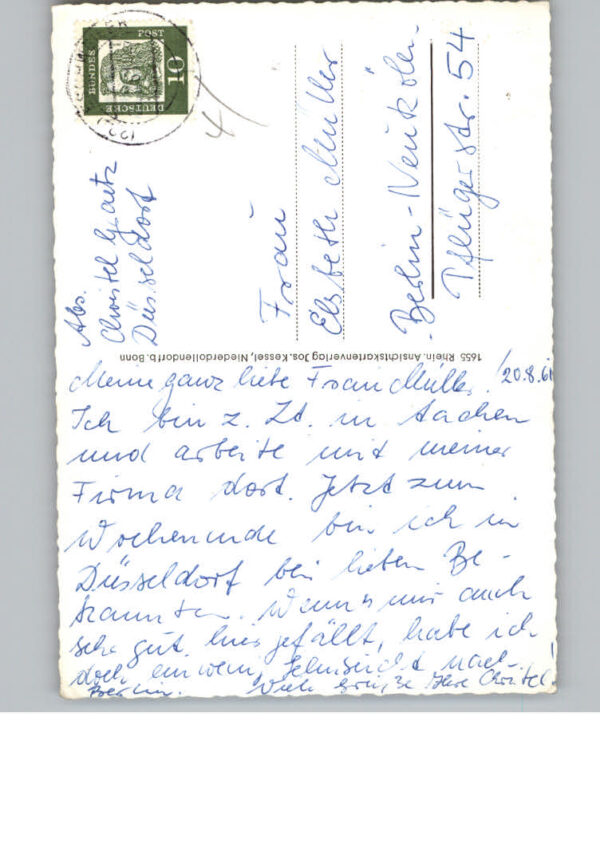 DEUTSCHE
BUNDES
POST
10
Abs.
Christel Graetz
Düsseldorf
Frau
Elsbeth Müller
Berlin-Neukölln
Pflügerstr. 54
1655 Rhein. Ansichtskartenverlag Jos. Kessel, Niederdollendorf b. Bonn
20.8.61
Meine ganz liebe Frau Müller!
Ich bin z. Zt. in Aachen
und arbeite mit meiner
Firma dort. Jetzt zum
Wochenende bin ich in
Düsseldorf bei lieben Be-
kannten. Wenn's mir auch
sehr gut hier gefällt, habe ich
doch ein wenig Sehnsucht nach
Berlin. Viele Grüße Ihre Christel.